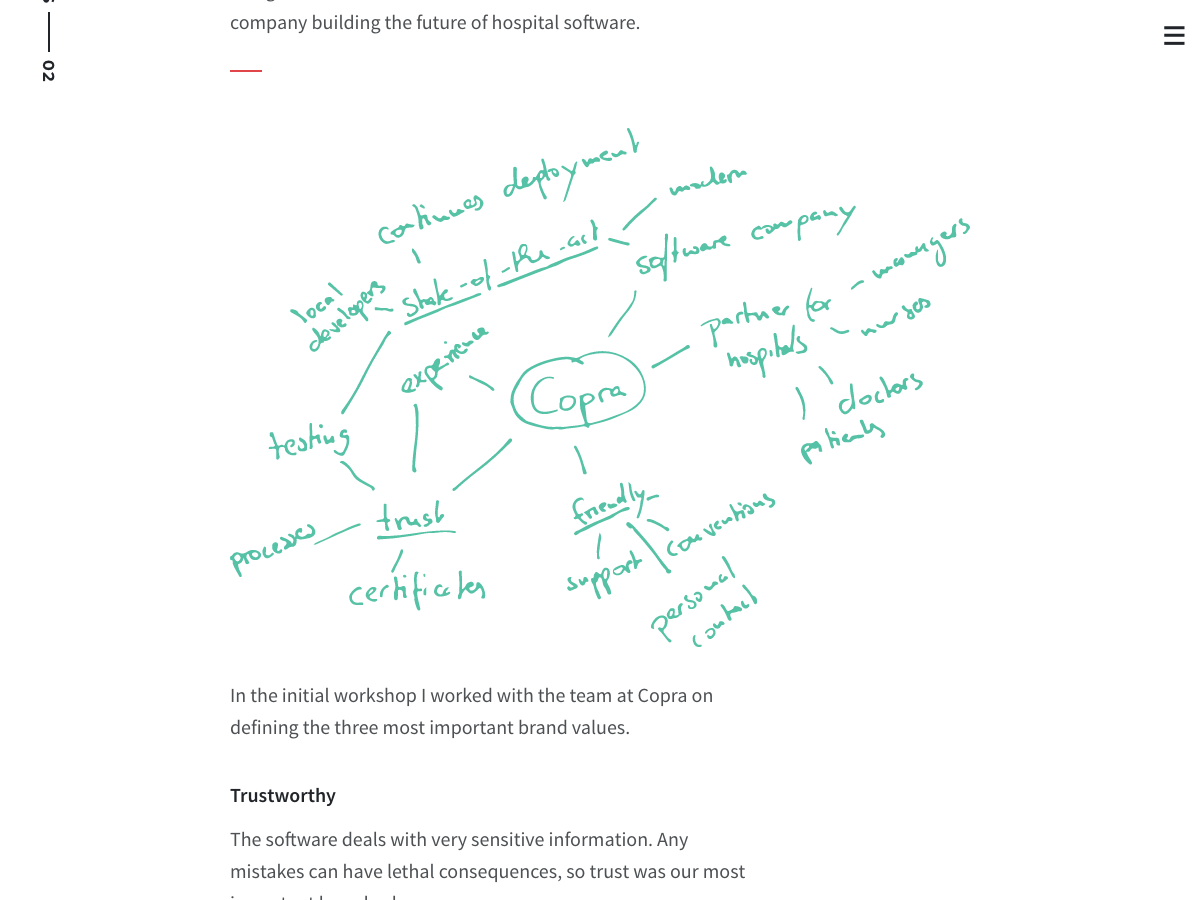 company building the future of hospital software.
02
continues deployment
modern
state-of-the-art
software company
local
developers
experience
Copra
partner for
hospitals
managers
nurses
doctors
patients
testing
trust
processes
certificates
friendly
support
conventions
personal
contact
In the initial workshop I worked with the team at Copra on
defining the three most important brand values.
Trustworthy
The software deals with very sensitive information. Any
mistakes can have lethal consequences, so trust was our most